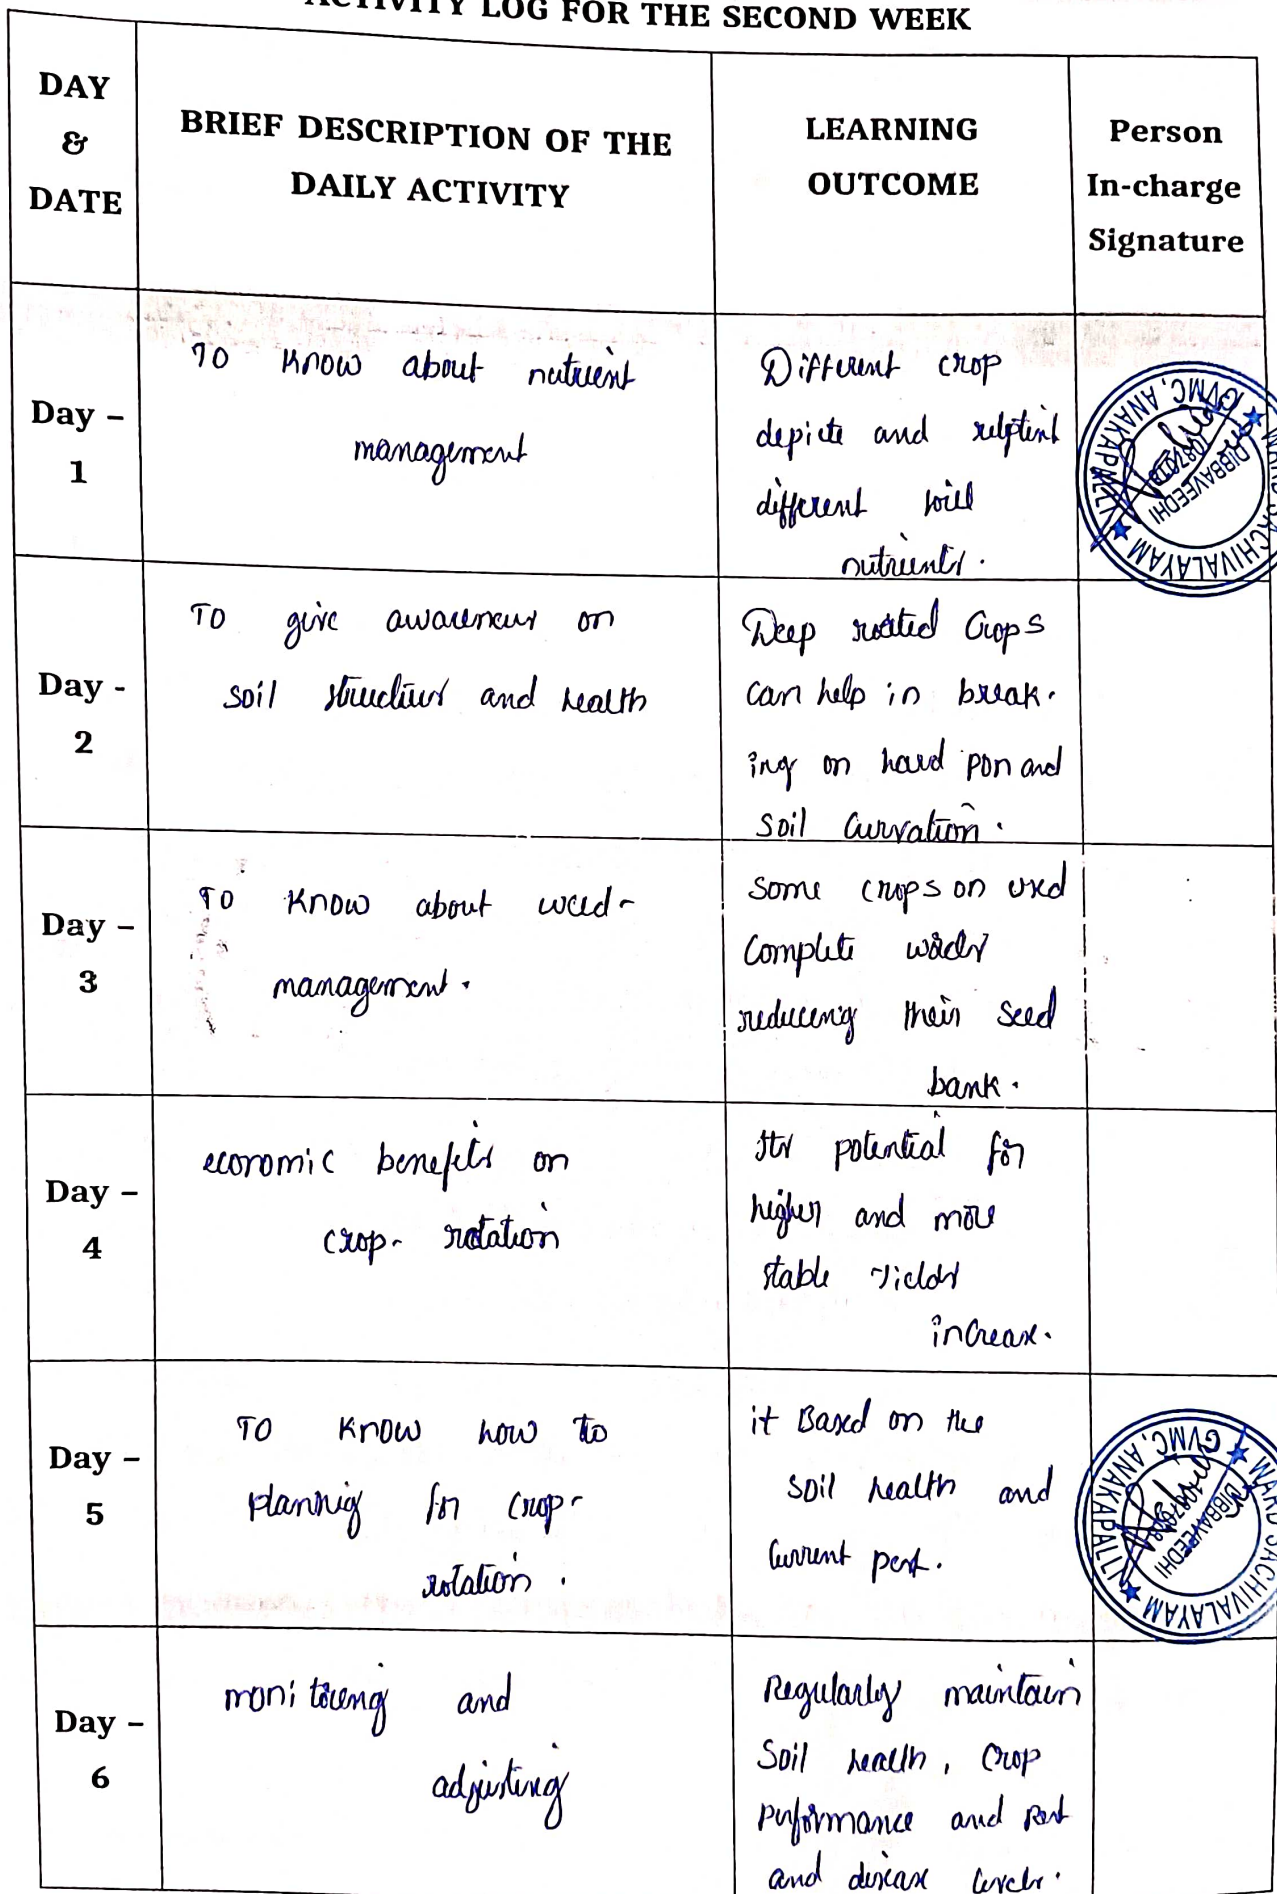 ACTIVITY LOG FOR THE SECOND WEEK
DAY
&
DATE
BRIEF DESCRIPTION OF THE
DAILY ACTIVITY
LEARNING
OUTCOME
Person
In-charge
Signature
Day –
1
TO Know about nutrient
management
Different crop
depicte and
different
nutrients.
WARD SACHIVALAYAM
GVMC, ANAKAPALLI
DIBBAVEEDHI
Day -
2
TO give awareness on
soil structure and health
Deep rooted Crops
can help in break.
ing on hard pan and
soil
Day –
3
TO Know about weed-
management.
Some crops on used
Complete weeds
reducing their seed
bank.
Day –
4
economic benefits on
crop- rotation
Its potential for
higher and more
stable yields
increase.
Day –
5
TO Know how to
planning for crop-
rotation.
it Based on the
soil health and
Current pest.
WARD SACHIVALAYAM
GVMC, ANAKAPALLI
DIBBAVEEDHI
Day –
6
monitoring and
adjusting
Regularly maintain
Soil health, crop
performance and pest
and disease levels.